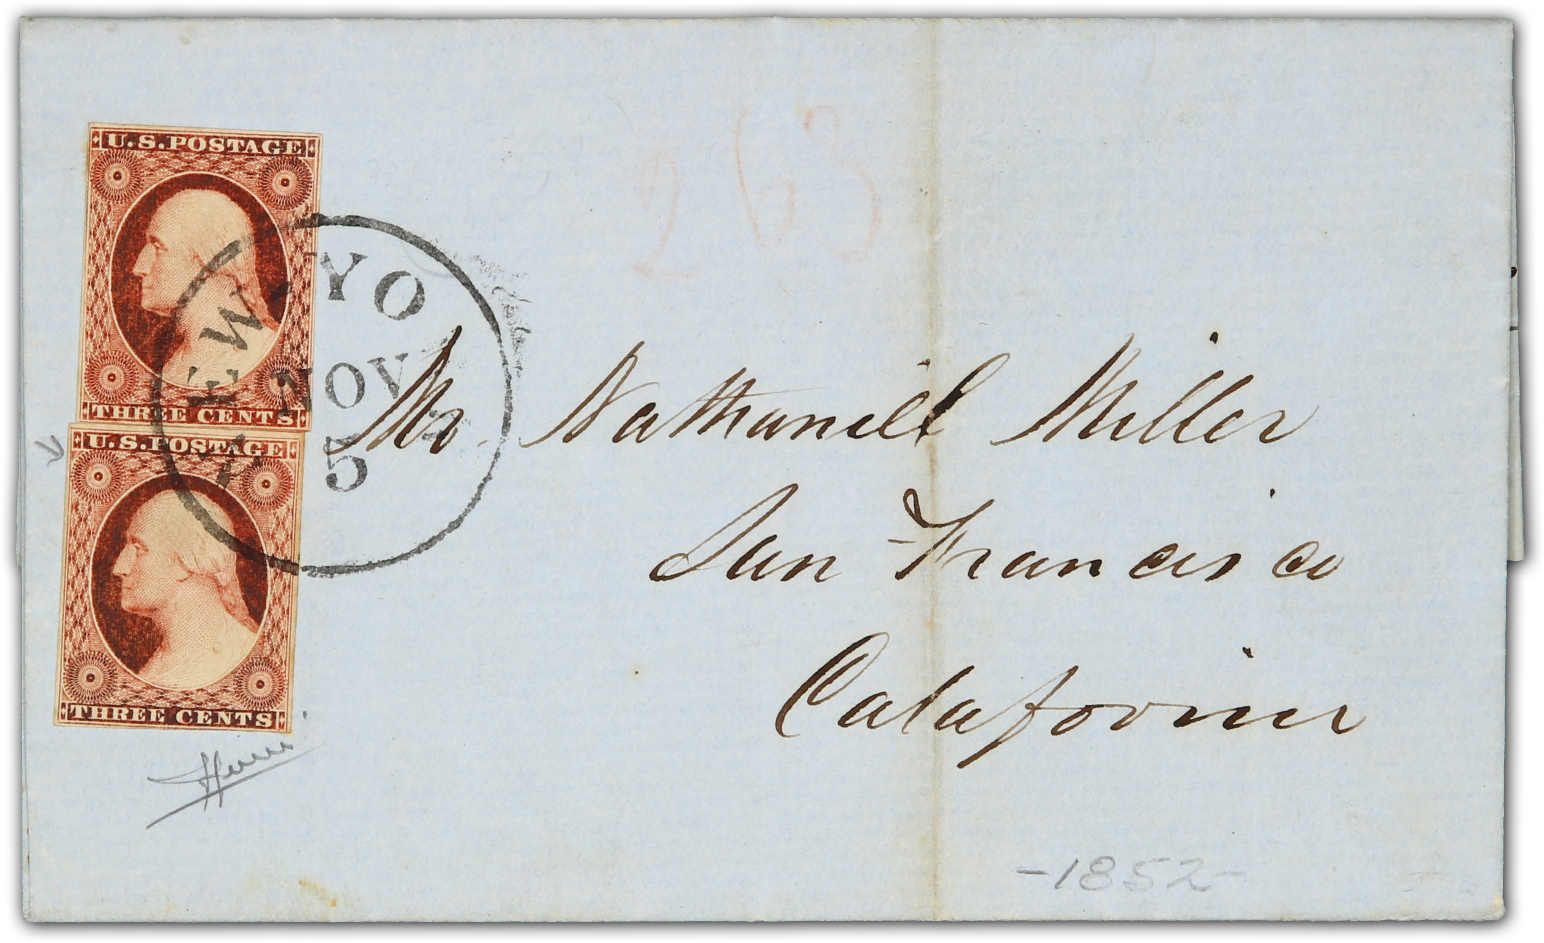 U.S.POSTAGE
THREE CENTS
U.S.POSTAGE
THREE CENTS
NEW YO
NOV
5
263
Mr. Nathaniel Miller
San Francisco
California
-1852-